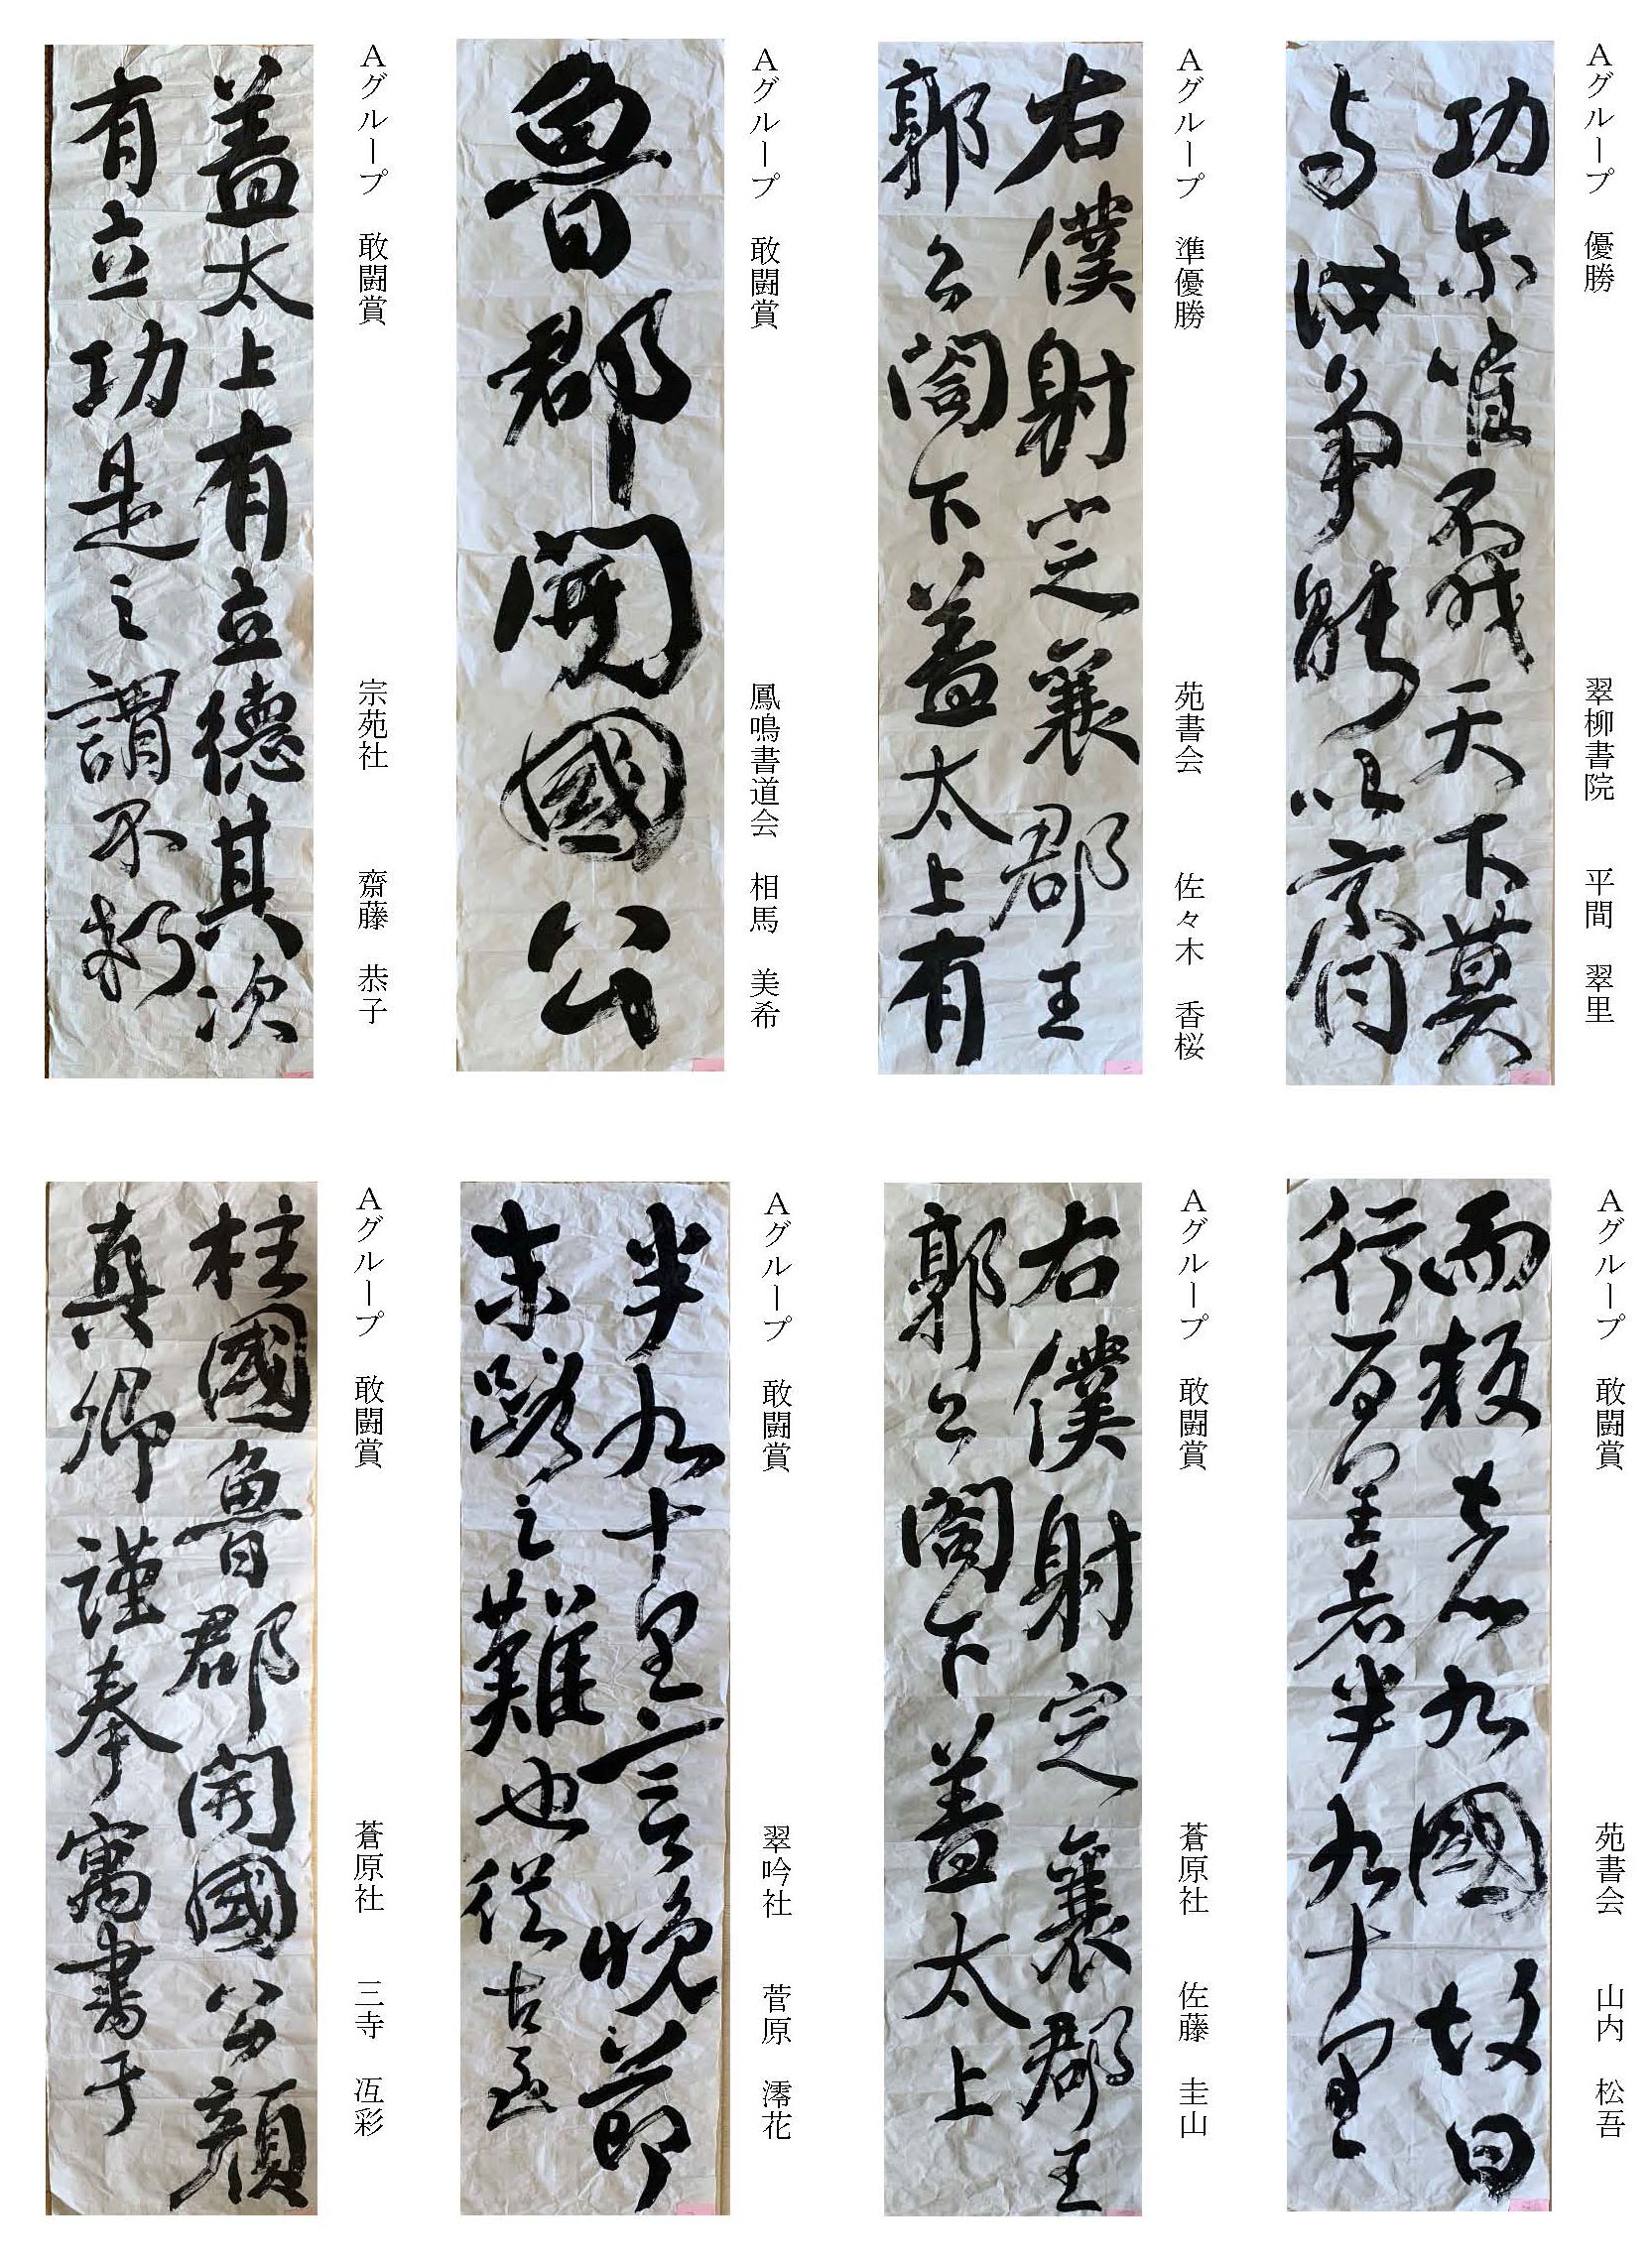 Aグループ 優勝 翠柳書院 平間 翠里
功尓唯不伐天下莫
与汝争能以齊
Aグループ 準優勝 苑書会 佐々木 香桜
右僕射定襄郡王
郭公閤下蓋太上有
Aグループ 敢闘賞 鳳鳴書道会 相馬 美希
魯郡開國公
Aグループ 敢闘賞 宗苑社 齋藤 恭子
蓋太上有立德其次
有立功是之謂不朽
Aグループ 敢闘賞 苑書会 山内 松吾
而叛者九國故曰
行百里者半九十里
Aグループ 敢闘賞 蒼原社 佐藤 圭山
右僕射定襄郡王
郭公閤下蓋太上
Aグループ 敢闘賞 翠吟社 菅原 澪花
半九十里言晩節
末路之難也従古至
Aグループ 敢闘賞 蒼原社 三寺 冱彩
柱國魯郡開國公顔
真卿謹奉寓書于